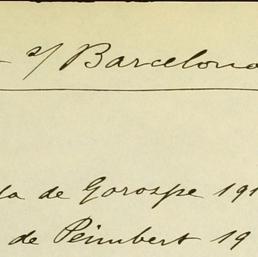 s/ Barcelona
da de Gorospe 191
de Peimbert 19